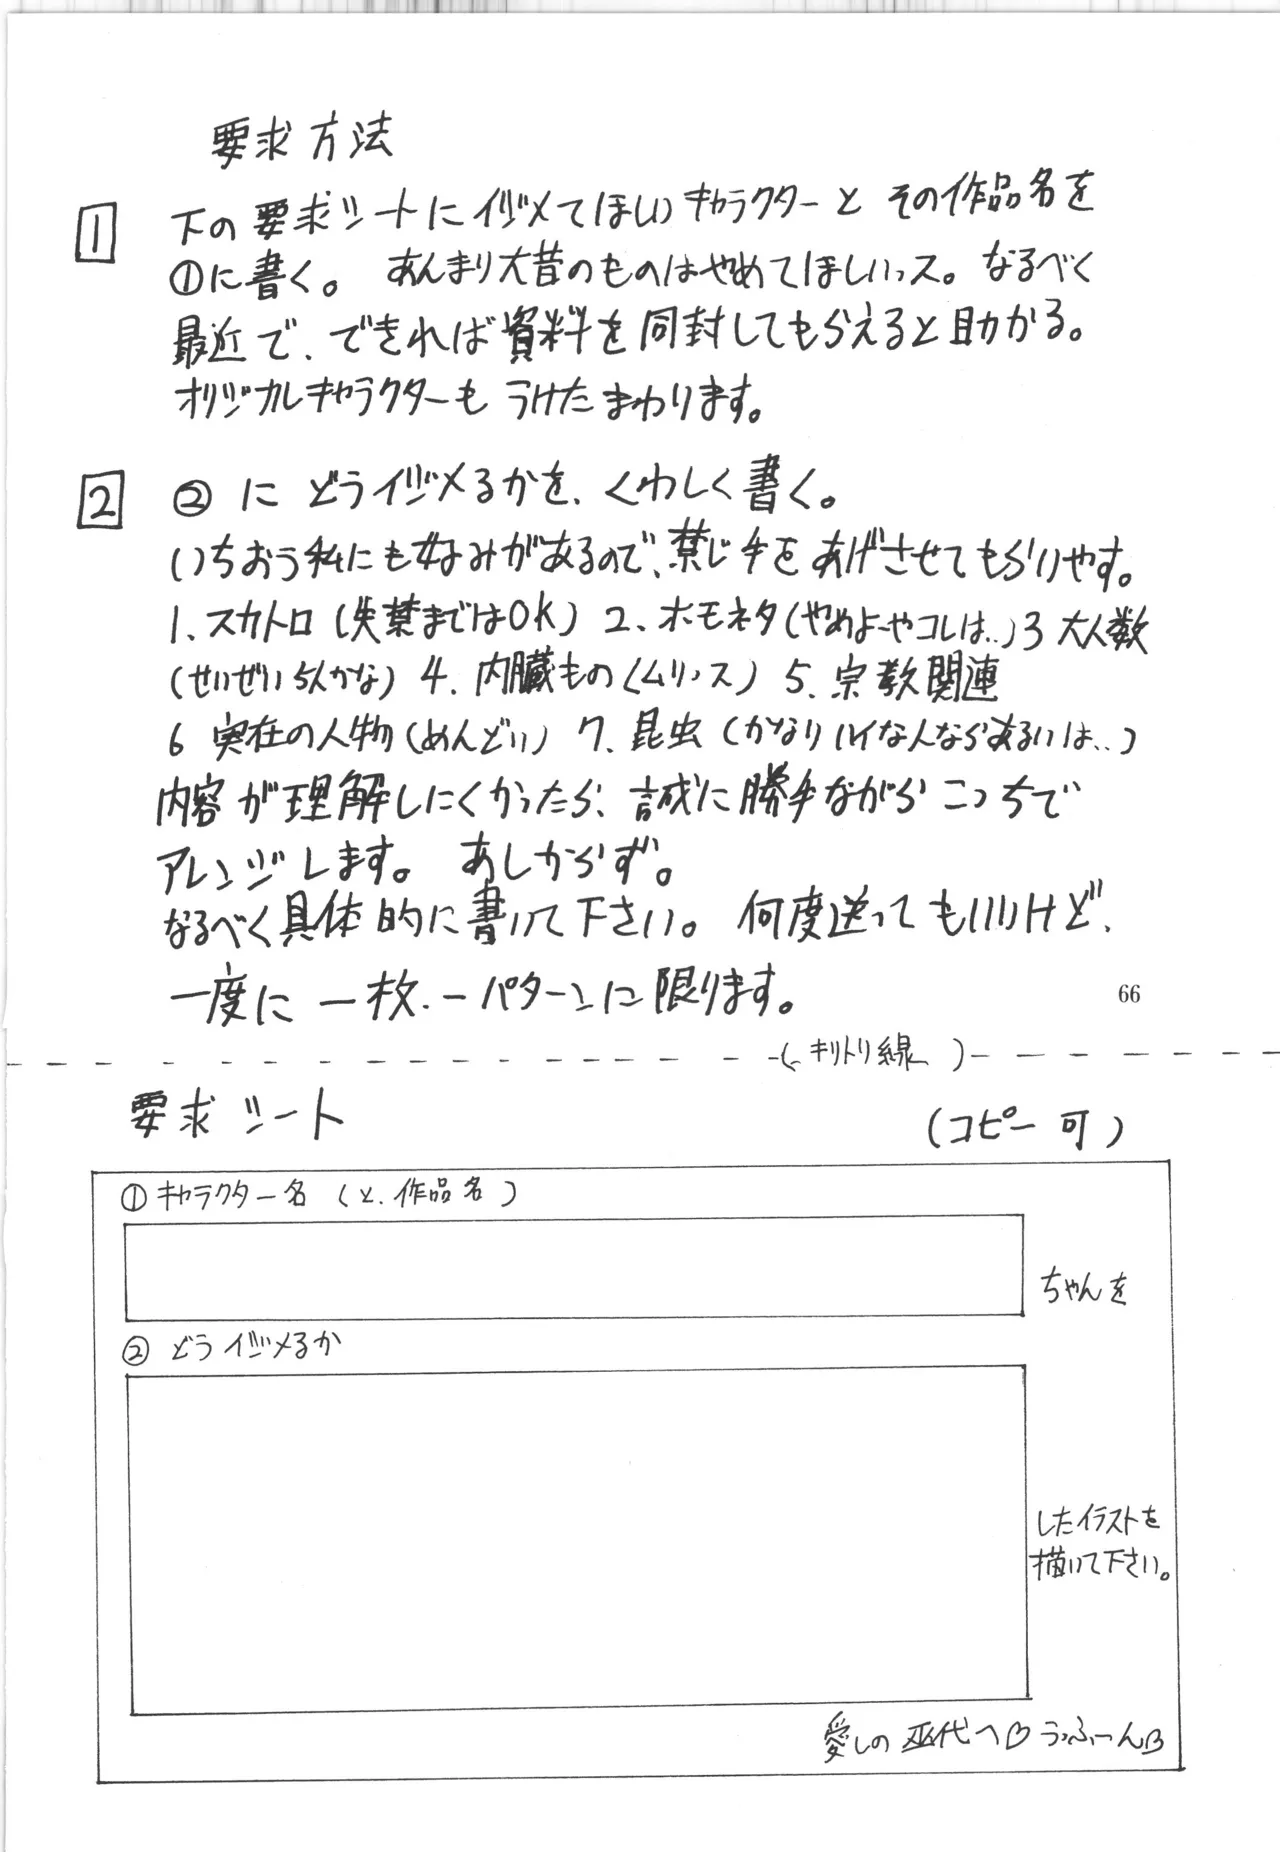 要求方法
1 下の要求シートにイジメてほしいキャラクターとその作品名を
①に書く。 あんまり大昔のものはやめてほしいっス。なるべく
最近で、できれば資料を同封してもらえると助かる。
オリジナルキャラクターもうけたまわります。
2 ②にどうイジメるかを、くわしく書く。
いちおう私にも好みがあるので、禁じ手をあげさせてもらいやす。
1、スカトロ(失禁まではOK) 2、ホモネタ(やめよーやコレは‥) 3 大人数
(せいぜい5人かな) 4、内臓もの(ムリっス) 5、宗教関連
6 実在の人物(めんどい) 7、昆虫(かなりハイな人ならあるいは‥)
内容が理解しにくかったら、誠に勝手ながらこっちで
アレンジします。 あしからず。
なるべく具体的に書いて下さい。 何度送ってもいいけど、
一度に一枚、一パターンに限ります。
66
(キリトリ線)
要求シート (コピー可)
①キャラクター名 (と、作品名)
ちゃんを
②どうイジメるか
したイラストを
描いて下さい。
愛しの巫代へ♡うっふーん♡